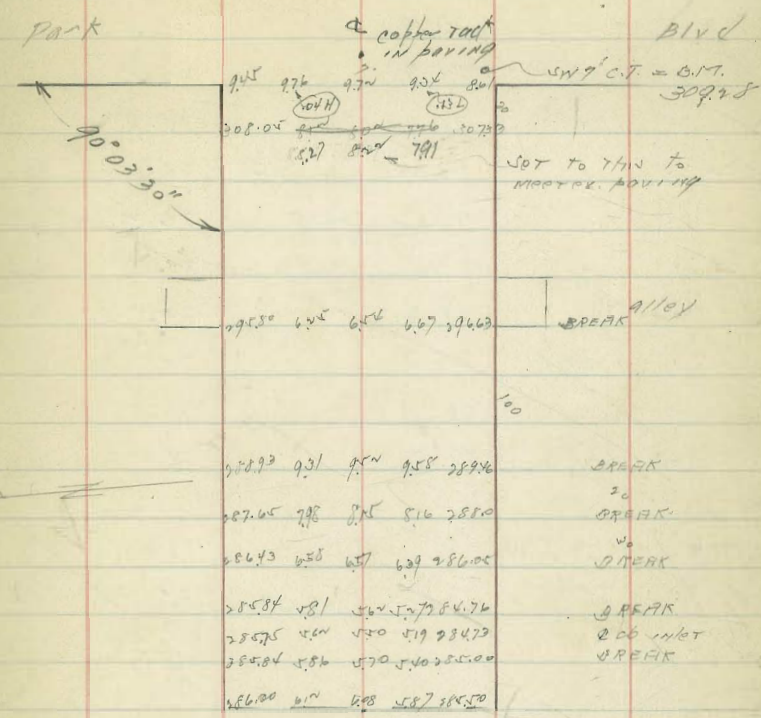 Park Blvd
copper tack
in paving
9.45 9.76 9.72 9.34 8.61 SW 7' C.T. = B.M.
309.28
308.05 307.33
8.27 8.22 7.91
90° 03' 30"
SET TO THIS TO
MEET EX. PAVING
alley
295.80 6.25 6.54 6.67 296.63 BREAK
100
288.93 9.31 9.52 9.58 289.46 BREAK
20
287.65 7.98 8.15 8.16 288.0 BREAK
286.43 6.58 6.57 6.39 286.05 BREAK
285.84 5.81 5.62 5.27 284.76 BREAK
285.75 5.62 5.50 5.19 284.73 inlet
285.84 5.86 5.70 5.40 285.00 BREAK
286.20 6.12 6.08 5.87 285.50